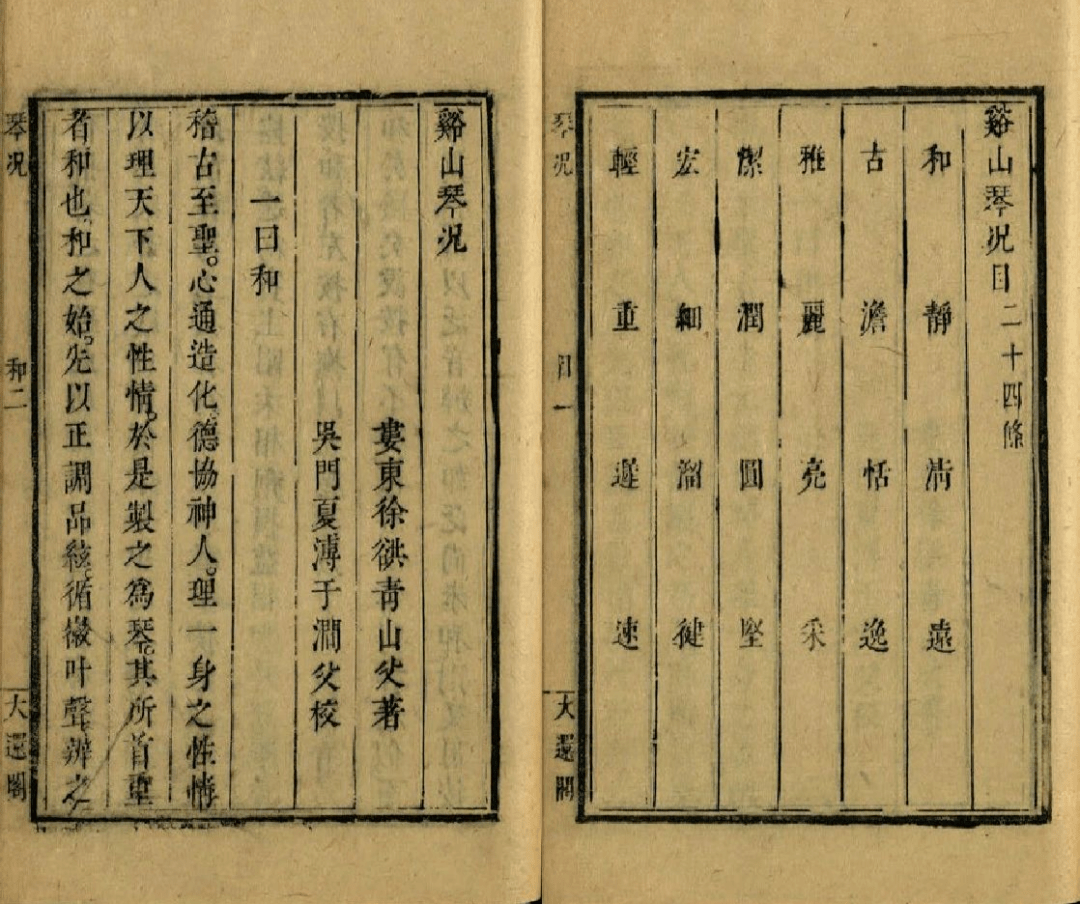 谿山琴况目二十四條
和 靜 清 遠
古 澹 恬 逸
雅 麗 亮 采
潔 潤 圓 堅
宏 細 溜 健
輕 重 遲 速
琴况
目一
大還閣
谿山琴况
婁東徐谼青山父著
吳門夏溥于澗父校
一曰和
稽古至聖。心通造化。德協神人。理一身之性情
以理天下人之性情。於是製之爲琴。其所首重
者和也。和之始。先以正調品絃。循徽叶聲。辨之
琴况
和二
大還閣